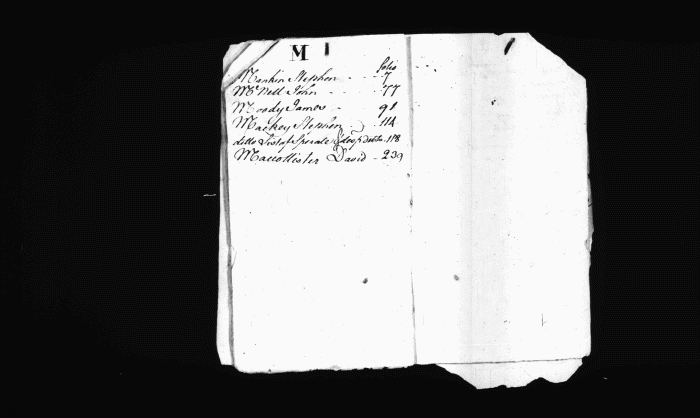 M
folio
Mankin Stephen - - 7
McNell John - - - 77
Moody James - 91
Mackey Stephen - 114
ditto List of Sperate & desp Debts - 118
Maccollister David - 239